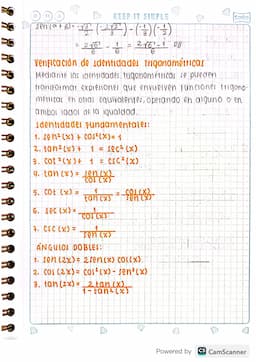 KEEP IT SIMPLE
Sen(a+b) =
= 2√6/6 - 1/6 = 2√6-1/6
Verificación de identidades trigonométricas
Mediante las identidades trigonométricas se pueden
transformar expresiones que envuelven funciones trigono-
métricas en otras equivalentes, operando en alguno o en
ambos lados de la igualdad.
Identidades fundamentales:
1. sen²(x) + cos²(x) = 1
2. tan²(x) + 1 = sec²(x)
3. cot²(x) + 1 = csc²(x)
4. tan(x) = sen(x)/cos(x)
5. cot(x) = 1/tan(x) = cos(x)/sen(x)
6. sec(x) = 1/cos(x)
7. csc(x) = 1/sen(x)
ÁNGULOS DOBLES:
1. sen(2x) = 2sen(x) cos(x)
2. cos(2x) = cos²(x) - sen²(x)
3. tan(2x) = 2tan(x)/1-tan²(x)
Powered by CS CamScanner